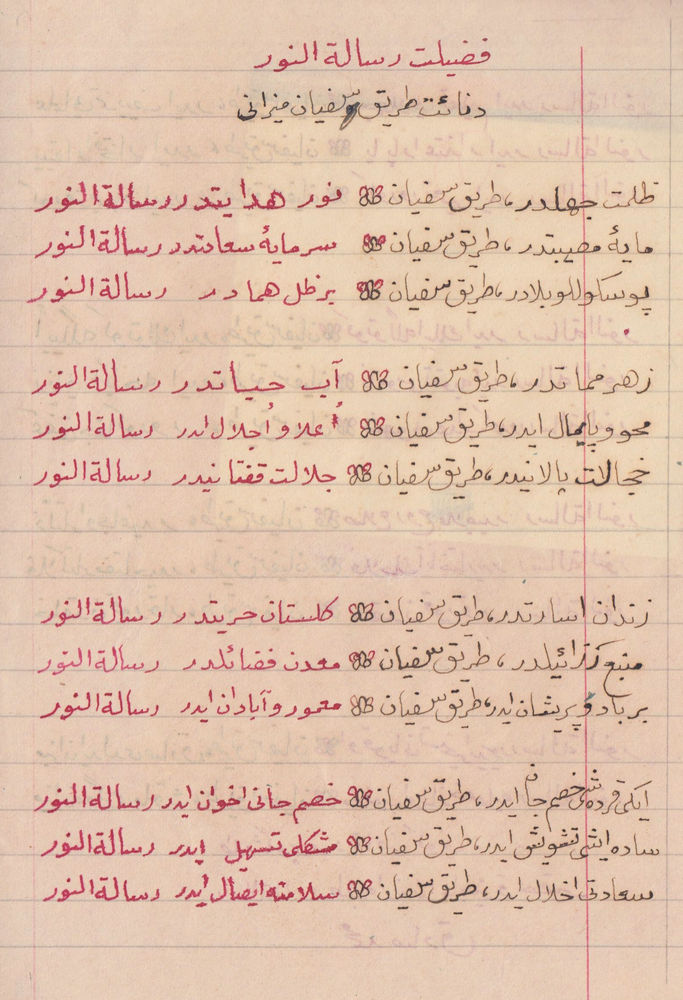 فضیلت رسالة النور
دنائت طریق سفیان میزانی
ظلمت جهلدر، طریق سفیان نور هدایتدر رسالة النور
مایۀ مصیبتدر، طریق سفیان سرمایۀ سعادتدر رسالة النور
پوسکوللو بلادر، طریق سفیان بر ظل همادر رسالة النور
زهر مماتدر، طریق سفیان آب حیاتدر رسالة النور
محو و پایمال ایدر، طریق سفیان اُعلا و اُجلال ایدر رسالة النور
خجالت پالانیدر، طریق سفیان جلالت قفتانیدر رسالة النور
زندان اسارتدر، طریق سفیان کلستان حریتدر رسالة النور
منبع رذائیلدر، طریق سفیان معدن فضائلدر رسالة النور
برباد و پریشان ایدر، طریق سفیان معمور و آبادان ایدر رسالة النور
ایکی قرده‌شی خصم جان ایدر، طریق سفیان خصم جانی اخوان ایدر رسالة النور
ساده ایشی تشویش ایدر، طریق سفیان مشکلی تسهیل ایدر رسالة النور
سعادتی اخلال ایدر، طریق سفیان سلامته ایصال ایدر رسالة النور